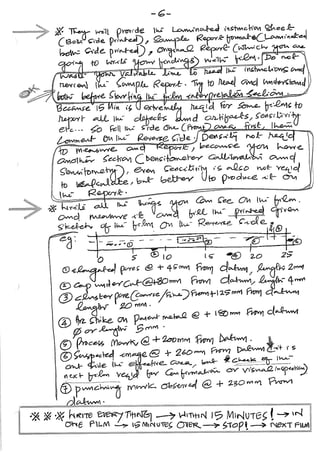 -6-
※ They will provide the Laminated instruction sheet
(Both side printed), Sample Report formats (Laminated
both side printed), original Report (which you are
going to write your findings) with film. Do not
waste your valuable time to read the instructions and
the Sample Report. Try to read and understand
both before starting the film interpretation section.
Because 15 Min is extremely req'd for some films to
report all the defects and artifacts, sensitivity
etc... So fill the side one (From) area first, then
comment on the Reverse side. Density not req'd
to measure and Report, because you have
another section (Densitometer Calibration and
Sensitometry), even sensitivity is also not req'd
to calculate, but better to produce it on
the Report.
※ Write all the things you can see on the film.
and measure it and fill the printed given
sketch of the film on the Reverse side.
eg:
0 5 10 15 20 25
① elongated pores @ + 45mm From datum, length 2mm
② Cap undercut @ +80mm From datum, length 4mm
③ cluster pore (coarse/fine) From +125mm From datum
length 20mm.
④ Arc Strike on Parent metal @ + 180mm From datum
Ø or length 5mm.
⑤ Process Mark @ + 200mm From Datum.
⑥ Suspected image @ + 260mm From Datum it is
out side the effective area, but * check of the
next film req'd for confirmation or visual inspection)
⑦ punching mark observed @ + 230mm From
datum.
※ ※ ※ WRITE EVERYTHING → WITHIN 15 MINUTES! → IN
ONE FILM → 15 MINUTES OVER → STOP! → NEXT FILM